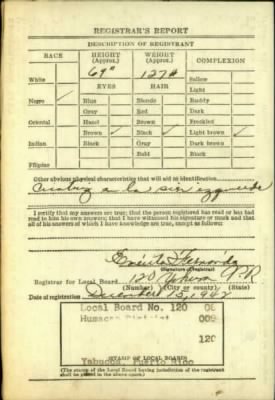 REGISTRAR'S REPORT
DESCRIPTION OF REGISTRANT
RACE HEIGHT (Approx.) WEIGHT (Approx.) COMPLEXION
69" 127#
White Sallow
EYES HAIR Light
Negro ✓ Blue Blonde Ruddy
Gray Red Dark
Oriental Hazel Brown Freckled
Brown ✓ Black ✓ Light brown ✓
Indian Black Gray Dark brown
Bald Black
Filipino
Other obvious physical characteristics that will aid in identification
a la
I certify that my answers are true; that the person registered has read or has had read to him his own answers; that I have witnessed his signature or mark and that all of his answers of which I have knowledge are true, except as follows:
(Signature of registrar)
Registrar for Local Board 120 P.R
(Number) (City or county) (State)
Date of registration December 15, 1942
Local Board No. 120
Humacao District 009
120
Yabucoa, Puerto Rico
(STAMP OF LOCAL BOARD)
(The stamp of the Local Board having jurisdiction of the registrant shall be placed in the above space.)